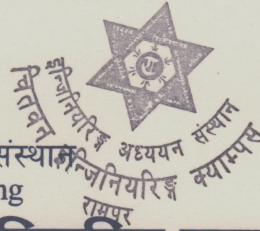 इन्जिनियरिङ्ग अध्ययन संस्थान
चितवन इन्जिनियरिङ्ग क्याम्पस
रामपुर
संस्थान
ng